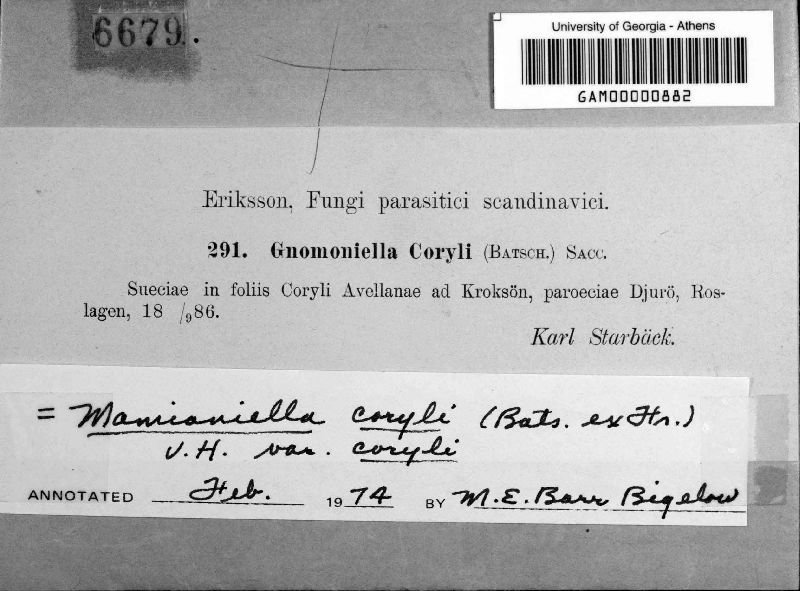 6679.
University of Georgia - Athens
GAM00000882
Eriksson, Fungi parasitici scandinavici.
291. Gnomoniella Coryli (BATSCH.) SACC.
Sueciae in foliis Coryli Avellanae ad Kroksön, paroeciae Djurö, Ros-
lagen, 18 /9 86.
Karl Starbäck.
= Mamianiella coryli (Bats. ex Fr.)
V.H. var. coryli
ANNOTATED Feb. 1974 BY M.E. Barr Bigelow